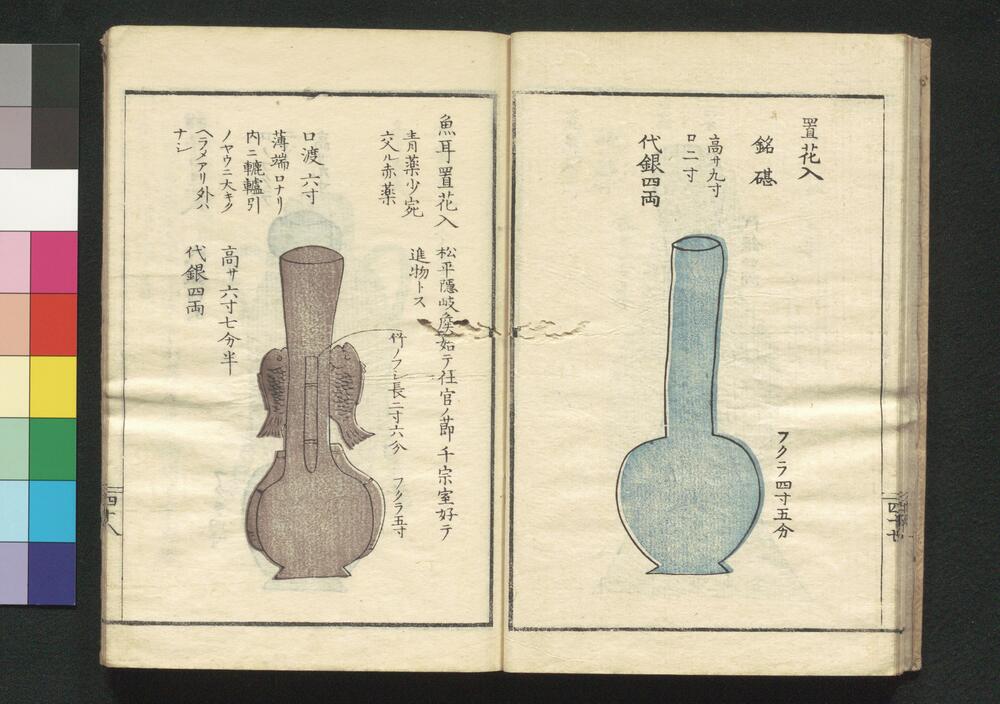 置花入
銘碪
高サ九寸
口二寸
代銀四両
フクラ四寸五分
四十七
魚耳置花入
青薬少宛
交ル赤薬
松平隠岐 始テ任官ノ節千宗室好テ
進物トス
口渡六寸
薄端口ナリ
内ニ轆轤引
ノヤウニ大キク
ヘラメアリ外ハ
ナシ
高サ六寸七分半
代銀四両
竹ノフシ長二寸六分
フクラ五寸
四十八